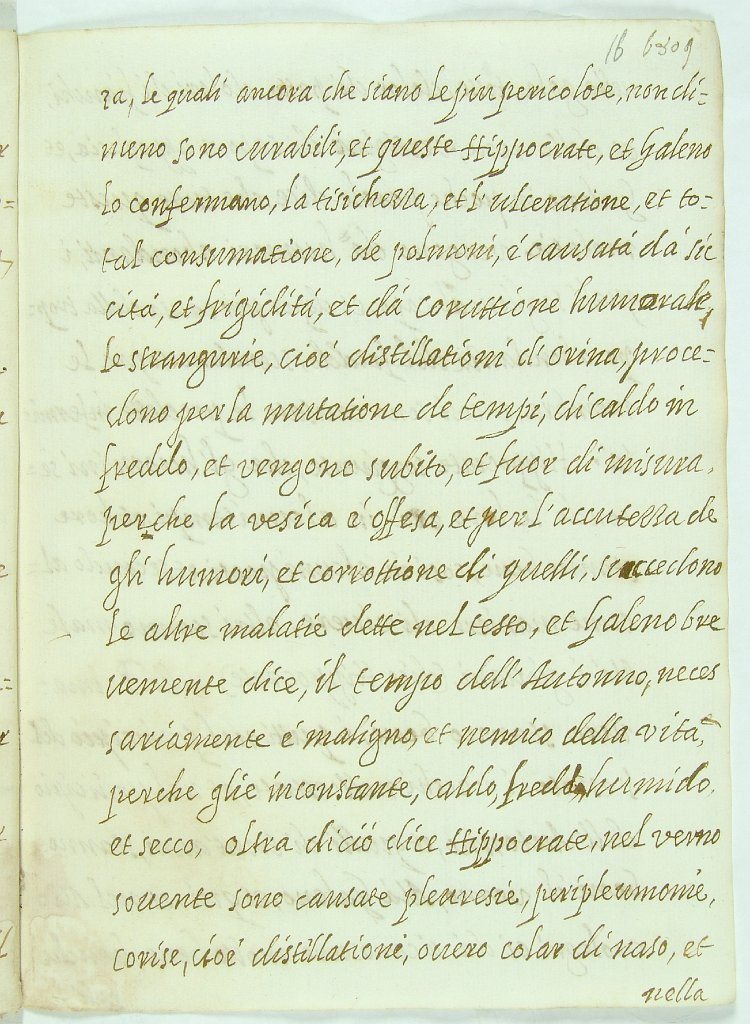 16 6309
za, le quali ancora che siano le piu pericolose, non di=
meno sono curabili, et queste Hippocrate, et Galeno
lo confermano, la tisichezza, et l'ulceratione, et to=
tal consumatione, de polmoni, é causata dá sic
citá, et frigiditá, et dá coruttione humorale,
le strangurie, cioé distillationi d'orina, proce=
dono per la mutatione de tempi, di caldo in
freddo, et vengono subito, et fuor di misura,
perche la vesica é offesa, et per l'accutezza de
gli humori, et corrottione di quelli, succedono
le altre malatie dette nel testo, et Galeno bre
uemente dice, il tempo dell'Autonno, neces
sariamente é maligno, et nemico della vita,
perche glie inconstante, caldo, freddo, humido,
et secco, oltra dició dice Hippocrate, nel verno
souente sono causate pleuresie, peripleumonie,
corise, cioé distillationi, ouero colar di naso, et
nella